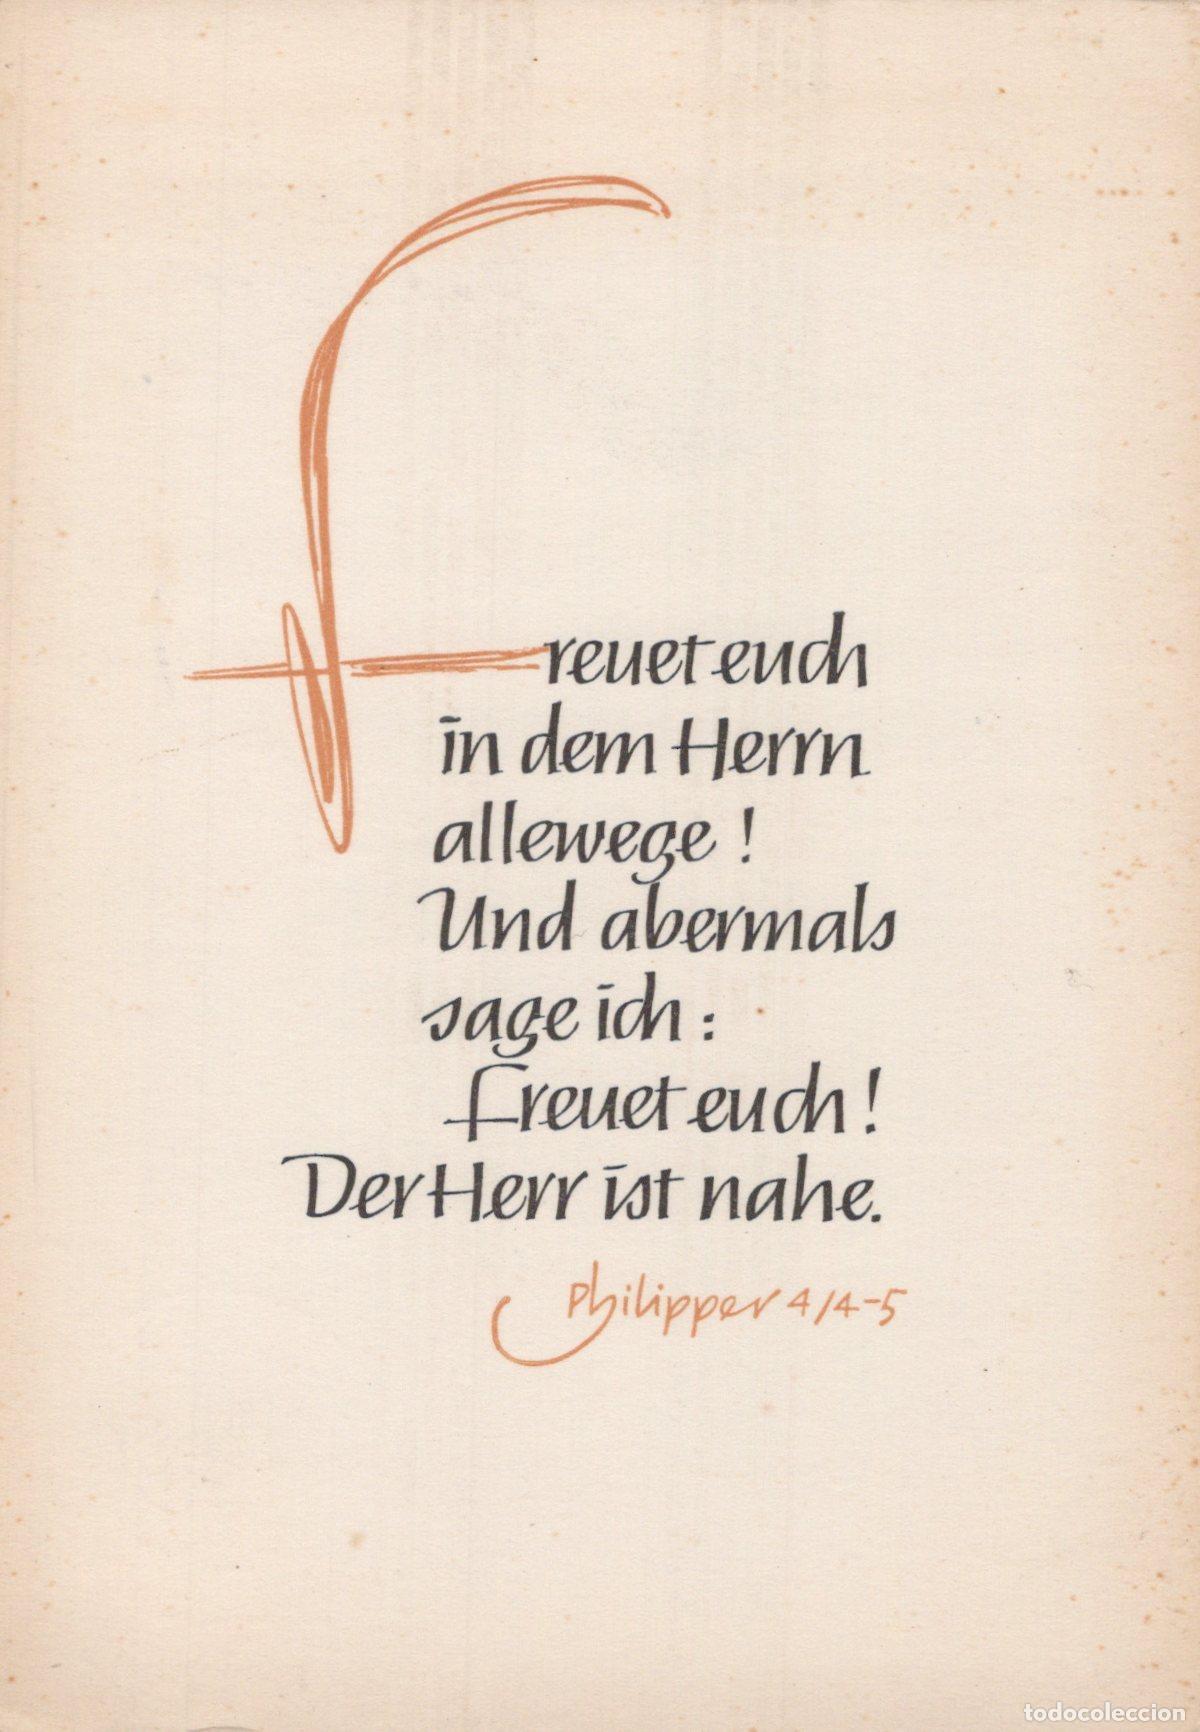 Freuet euch
in dem Herrn
allewege!
Und abermals
sage ich:
Freuet euch!
Der Herr ist nahe.
Philipper 4/4-5
todocoleccion